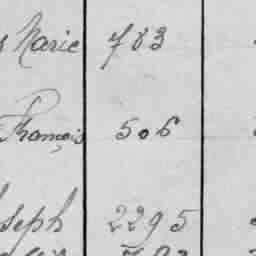 Marie 783
François 506
seph 2295